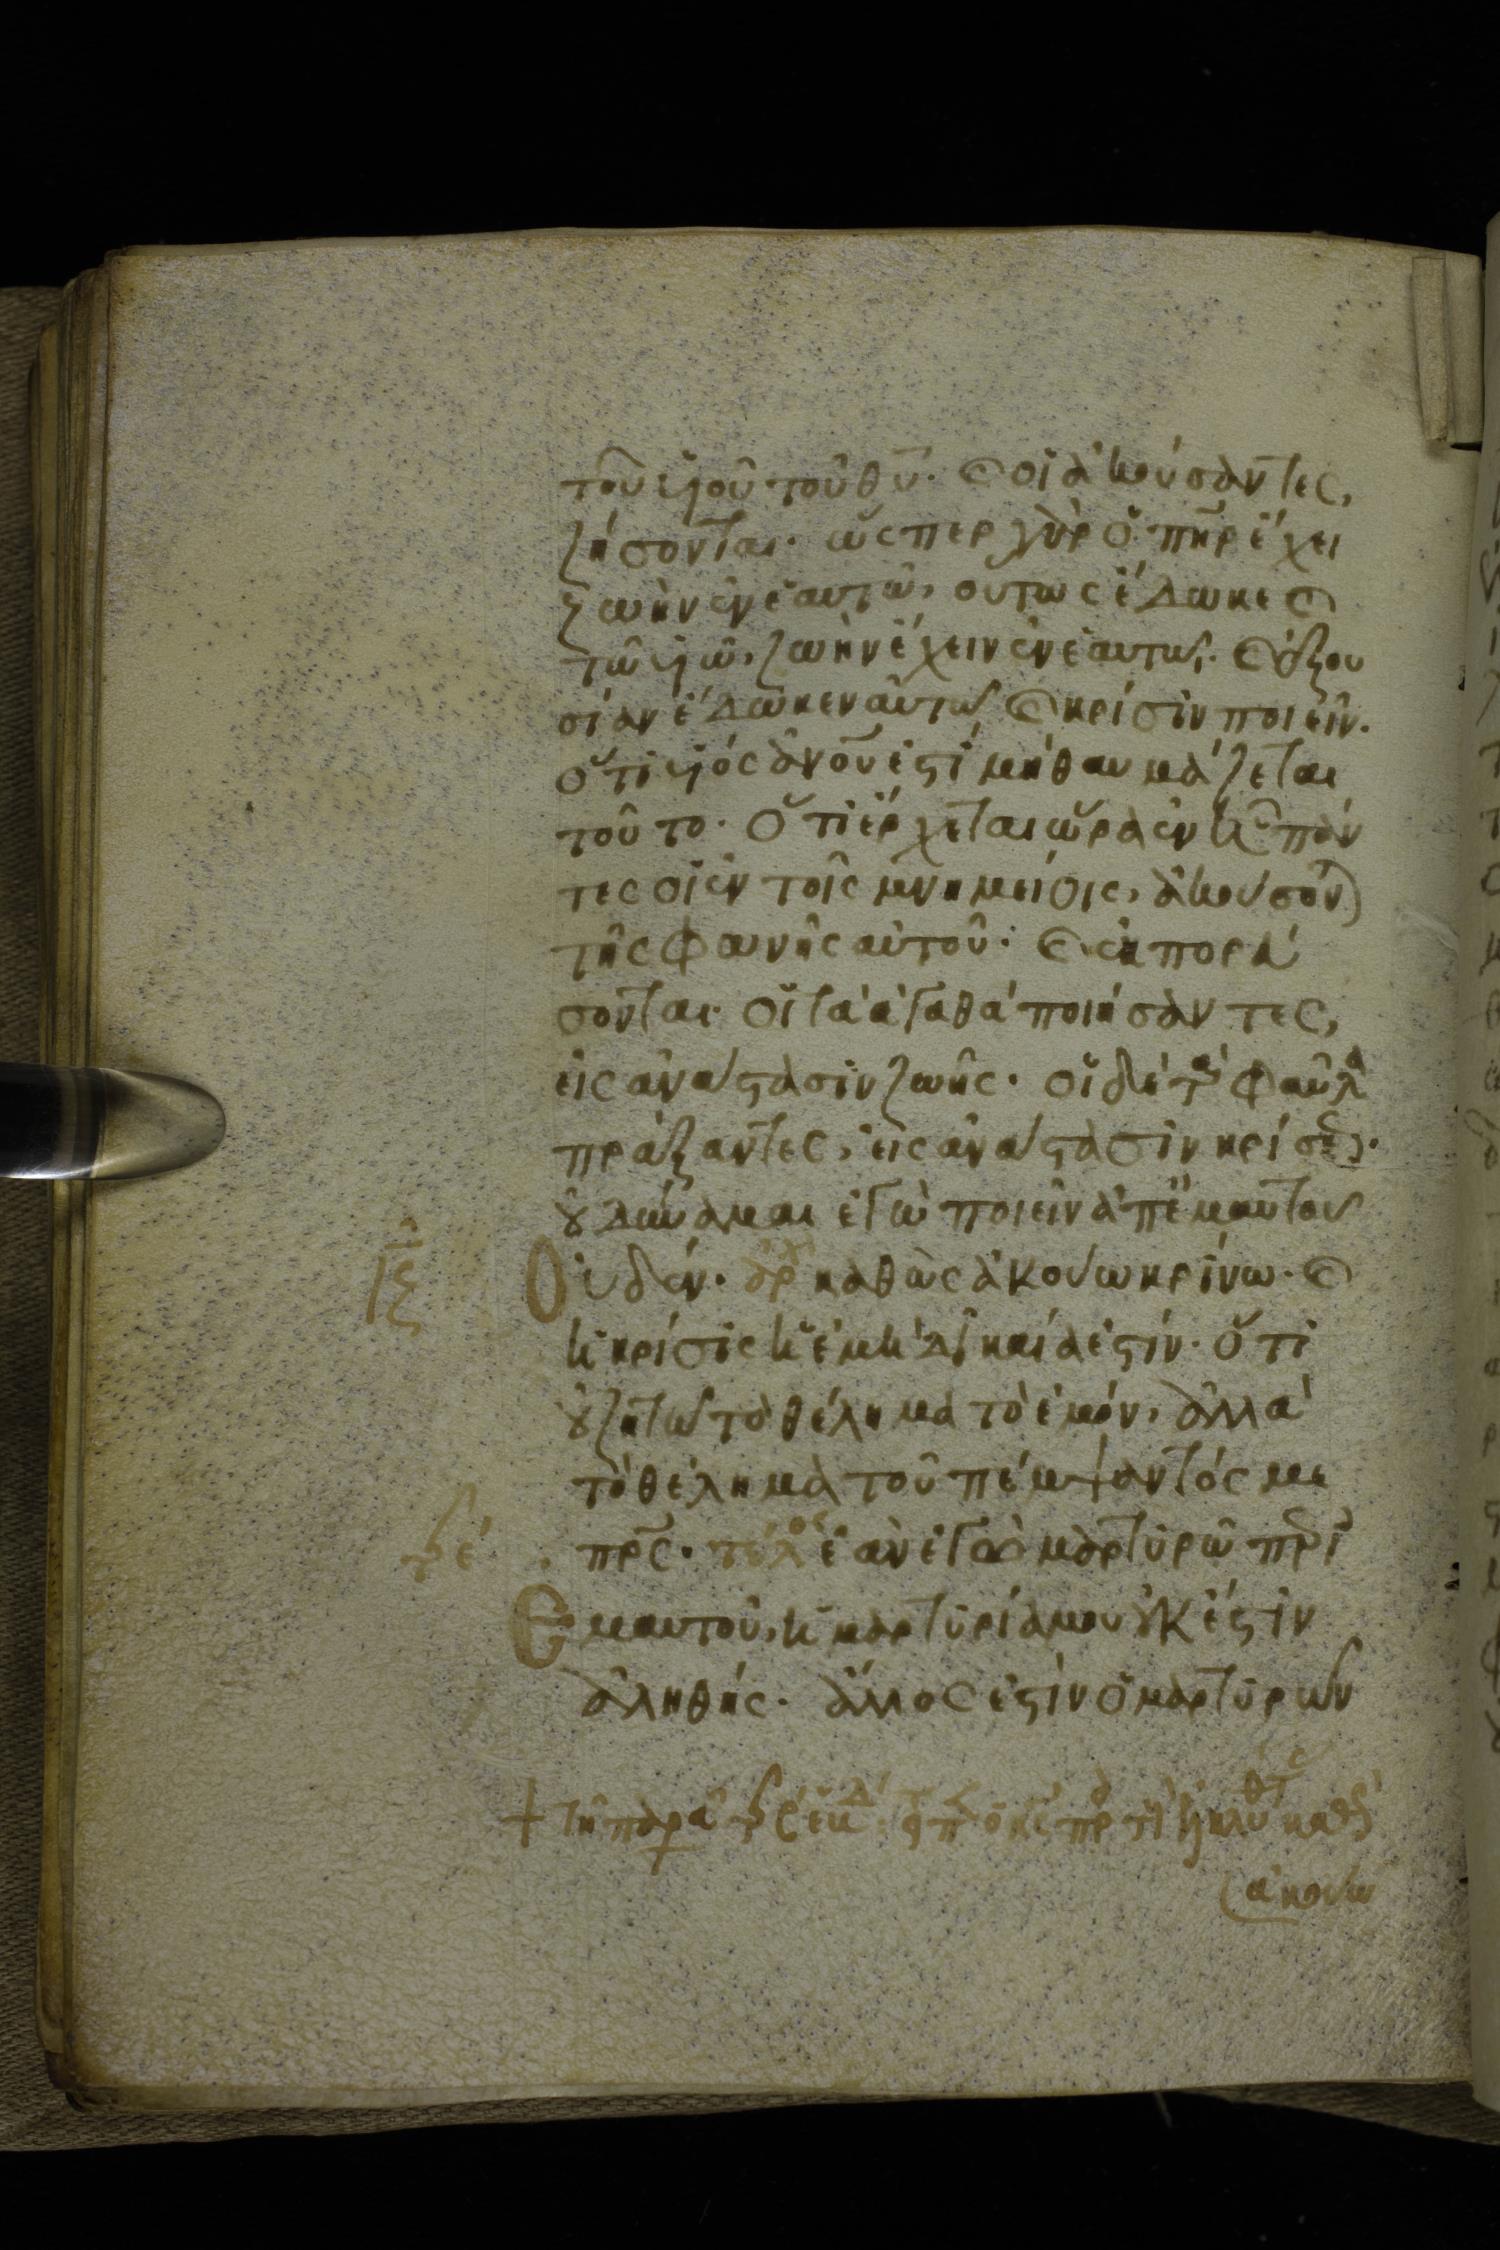 τοῦ υἱοῦ τοῦ θῦ. καὶ οἱ ἀκούσαντες,
ζήσονται. ὥσπερ γὰρ ὁ πηρ ἔχει
ζωὴν ἐν ἑαυτῶ, οὕτως ἔδωκε καὶ
τῶ υἱῶ, ζωὴν ἔχειν ἐν ἑαυτῶ. καὶ ἐξου
σίαν ἔδωκεν αὐτῶ καὶ κρίσιν ποιεῖν.
ὅτι υἱός ἀνου ἐστί μὴ θαυμάζεται
τοῦτο. ὅτι ἔρχεται ὥρα ἐν ἧ πάν
τες οἱ ἐν τοῖς μνημείοις, ἀκούσον)
τῆς φωνῆς αὐτοῦ. καὶ ἐκπορεύ
σονται. οἱ τὰ ἀγαθὰ ποιήσαντες,
εἰς ἀνάστασιν ζωῆς. οἱ δὲ τὰ φαῦλα
πράξαντες, εἰς ἀνάστασιν κρίσεως.
οὐ δύναμαι ἐγὼ ποιεῖν ἀπ' ἐμαυτοῦ
Οὐδέν. ἀρχ καθὼς ἀκούω κρίνω. καὶ
ἡ κρίσις ἡ ἐμὴ δικαία ἐστίν. ὅτι
οὐ ζητῶ τὸ θέλημα τὸ ἐμόν, ἀλλὰ
τὸ θέλημα τοῦ πέμψαντός με
πρς. τέλος ἐὰν ἐγὼ μαρτυρῶ περὶ
Ἐμαυτοῦ, ἡ μαρτυρία μου οὐκ ἔστιν
ἀληθής. ἄλλος ἐστὶν ὁ μαρτυρῶν
ἀκούω